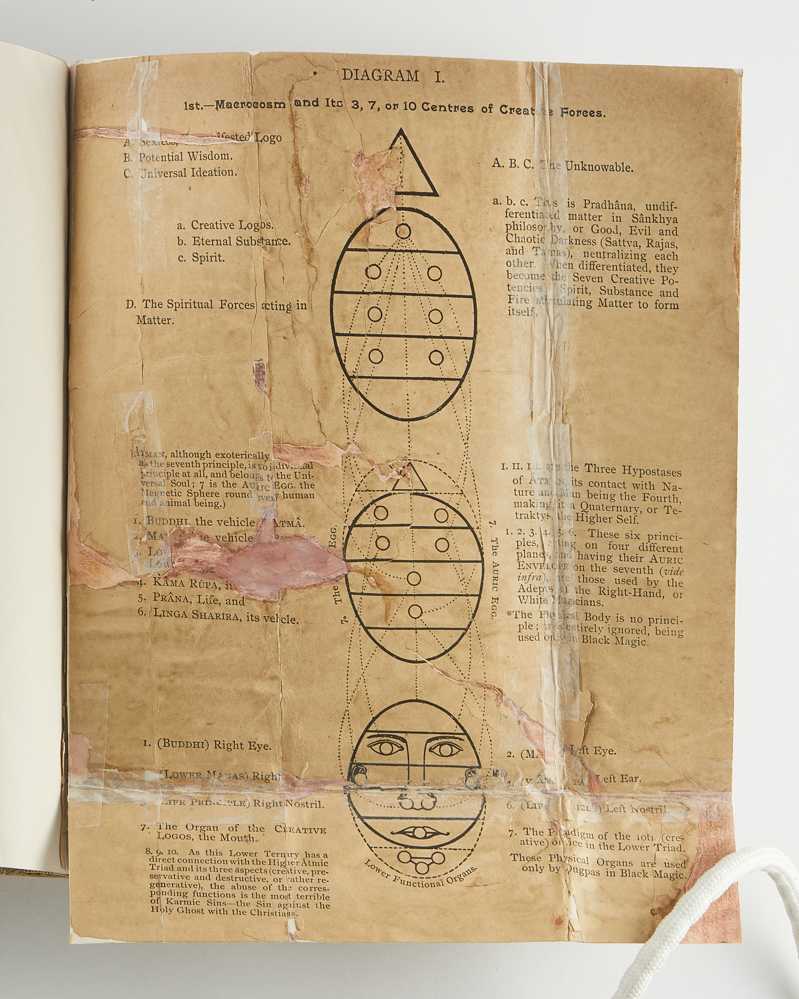 DIAGRAM I.
1st.—Macrocosm and Its 3, 7, or 10 Centres of Forces.
A. Logo
B. Potential Wisdom.
C. Universal Ideation.
A. B. C. The Unknowable.
a. Creative Logos.
b. Eternal Substance.
c. Spirit.
D. The Spiritual Forces acting in
Matter.
a. b. c. This is Pradhâna, undif-
ferentiated matter in Sânkhya
philosophy, or Good, Evil and
Chaotic Darkness (Sattva, Rajas,
and Tamas), neutralizing each
other. When differentiated, they
become the Seven Creative Po-
tencies: Spirit, Substance and
Fire stimulating Matter to form
itself.
(ÂTMAN, although exoterically
as the seventh principle, is no individual
principle at all, and belongs to the Uni-
versal Soul; 7 is the AURIC EGG, the
Magnetic Sphere round every human
and animal being.)
1. BUDDHI, the vehicle ÂTMÂ.
2. the vehicle
3.
4. KÂMA RÛPA,
5. PRÂNA, Life, and
6. LINGA SHARIRA, its vehicle.
7. The EGG.
7. The AURIC EGG.
I. II. the Three Hypostases
of its contact with Na-
ture and Man being the Fourth,
making it a Quaternary, or Te-
traktys, the Higher Self.
1. 2. 3. 4. 5. 6. These six princi-
ples, acting on four different
planes, and having their AURIC
ENVELOPE on the seventh (vide
infra), are those used by the
Adepts of the Right-Hand, or
White Magicians.
*The Physical Body is no princi-
ple; it is entirely ignored, being
used only in Black Magic.
1. (BUDDHI) Right Eye.
(LOWER MANAS) Right
(LIFE PRINCIPLE) Right Nostril.
7. The Organ of the CREATIVE
LOGOS, the Mouth.
8. 9. 10. As this Lower Ternary has a
direct connection with the Higher Âtmic
Triad and its three aspects (creative, pre-
servative and destructive, or rather re-
generative), the abuse of the corres-
ponding functions is the most terrible
of Karmic Sins—the Sin against the
Holy Ghost with the Christians.
Lower Functional Organs.
2. Left Eye.
Left Ear.
6. Left Nostril.
7. The Paradigm of the 10th (cre-
ative) in the Lower Triad.
These Physical Organs are used
only by Dugpas in Black Magic.